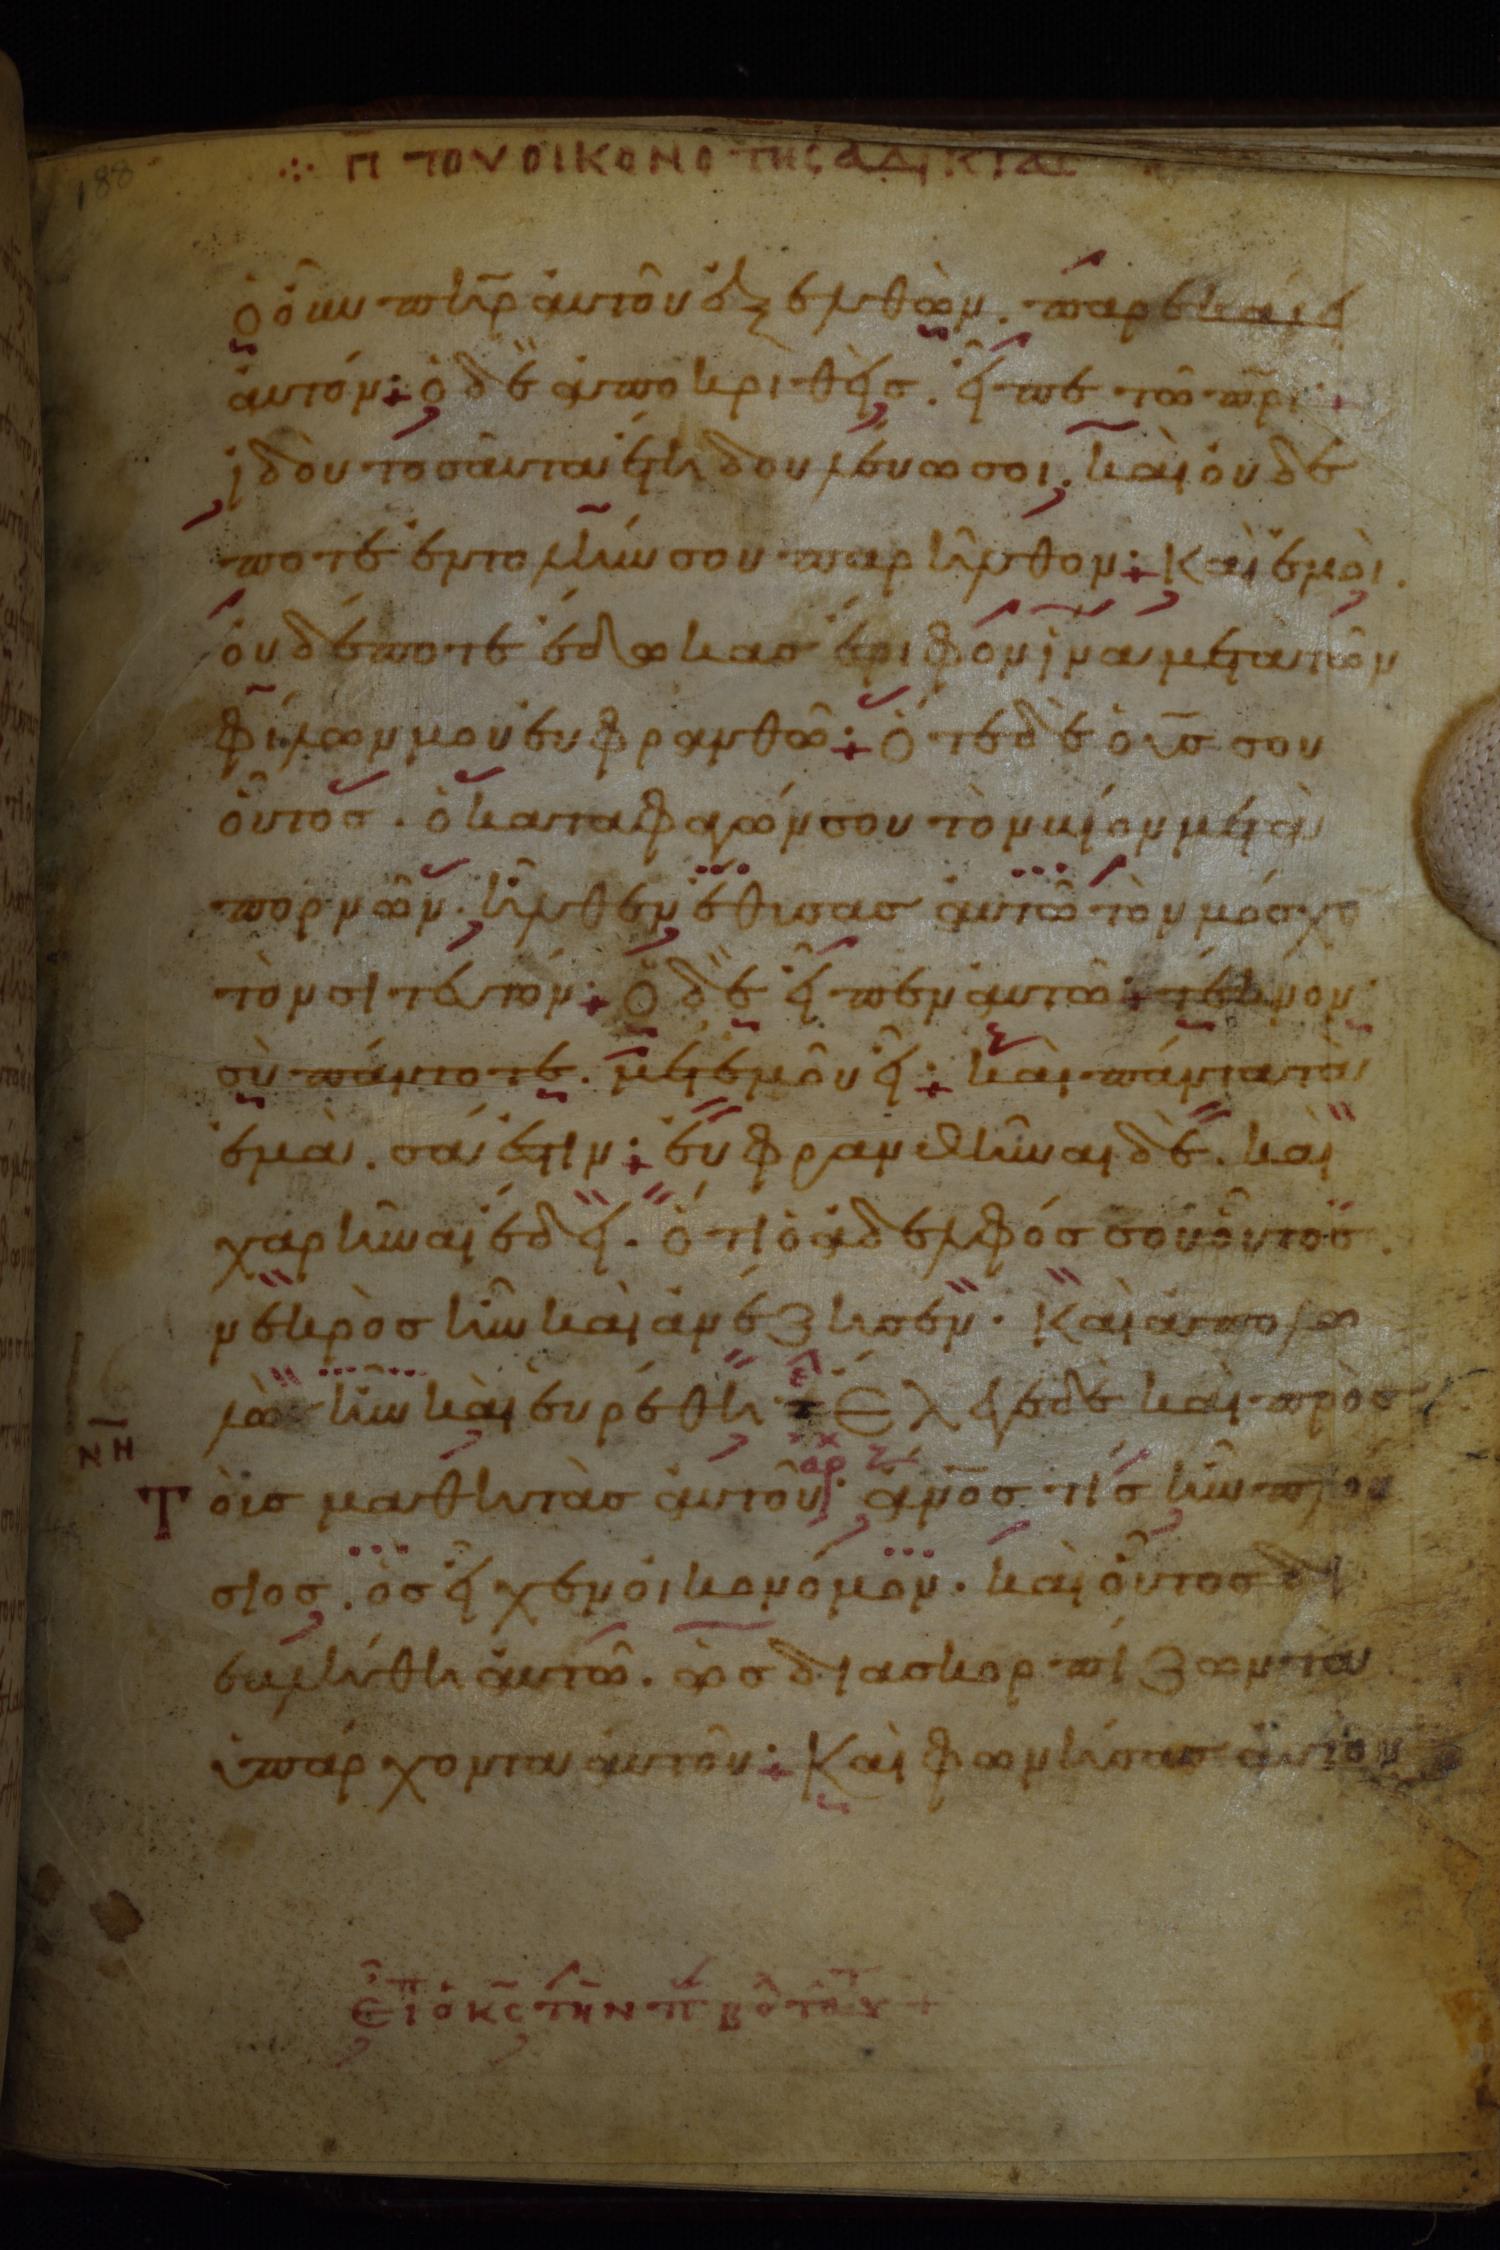 188
⁘ Π ΤΟΥ ΟΙΚΟΝΟ ΤΗΣ ΑΔΙΚΙΑΣ
ὁ οὖν πη̅ρ αὐτοῦ ἐξελθὼν. παρεκάλει
αὐτόν: ὁ δὲ ἀποκριθεὶς. εἶπε τῶ π̅ρι
ἰδοὺ τοσαῦτα ἔτη δουλεύω σοι. καὶ οὐδέ
ποτε ἐντολήν σου παρῆλθον: Καὶ ἐμοὶ.
οὐδέποτε ἔδωκασ ἔριφον ἵνα μετὰ τῶν
φίλων μου εὐφρανθῶ: Ὅτε δὲ ὁ υ̅σ σου
οὗτοσ. ὁ καταφαγών σου τὸν βίον μετὰ
πορνῶν. ἦλθεν ἔθυσασ αὐτῶ τὸν μόσχο
τὸν σιτευτόν: Ὁ δὲ εἶπεν αὐτῶ: τέκνον
σὺ πάντοτε. μετ' ἐμοῦ εἶ: καὶ πάντα τὰ
ἐμὰ. σά ἐστιν: εὐφρανθῆναι δὲ. καὶ
χαρῆναι ἔδει. ὅτι ὁ ἀδελφόσ σου οὗτοσ.
νεκρὸσ ἦν καὶ ἀνέζησεν. Καὶ ἀπολω
λὼσ ἦν καὶ εὑρέθη Ἔλεγε δὲ καὶ πρὸσ
Ν̅Η̅
Τ οὺσ μαθητὰσ αὐτοῦ: ἄν̅οσ τίσ ἦν πλού
σιοσ. ὃσ εἶχεν οἰκονόμον. καὶ οὗτοσ δι
εβλήθη αὐτῶ. ὡσ διασκορπίζων τὰ
ὑπάρχοντα αὐτοῦ: Καὶ φωνήσασ αὐτὸν